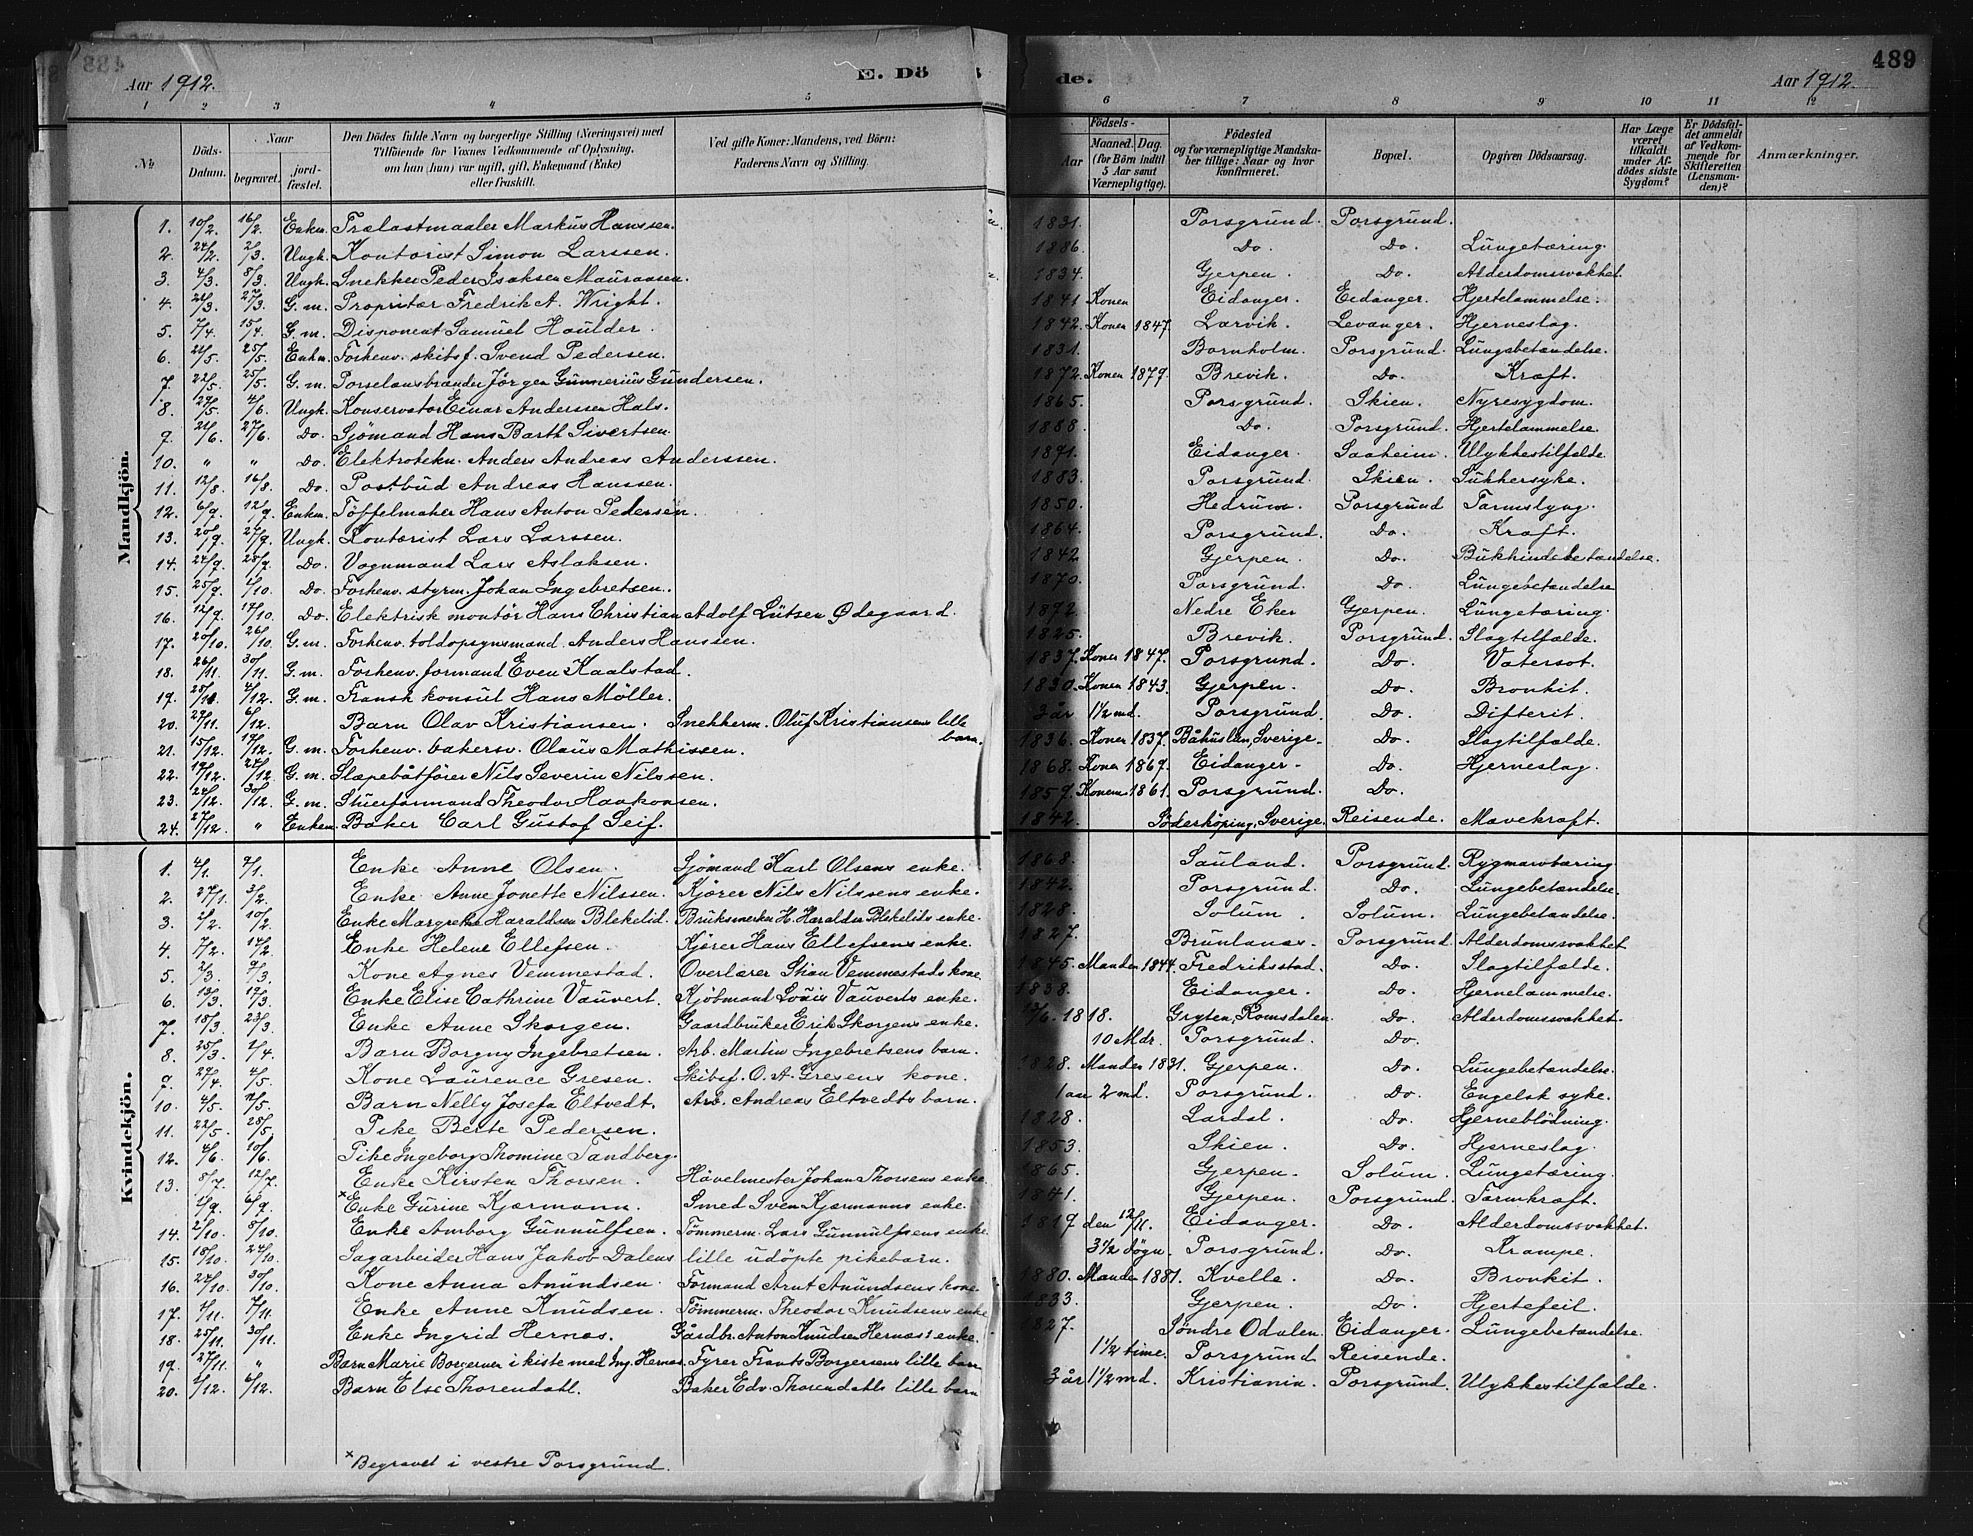 489
Aar 1912. E. Døde. Aar 1912.
1 2 3 4 5 6 7 8 9 10 11 12
No Døds-Datum. Naar begravet. jordfæstet. Den Dødes fulde Navn og borgerlige Stilling (Næringsvei) med Tilføiende for Voxnes Vedkommende af Oplysning, om han (hun) var ugift, gift, Enkemand (Enke) eller fraskilt. Ved gifte Koner: Mandens, ved Børn: Faderens Navn og Stilling. Fødsels- Aar Maaned. Dag. (for Børn indtil 5 Aar samt Værnepligtige). Fødested og for værnepligtige Mandskaber tillige: Naar og hvor konfirmeret. Bopæl. Opgiven Dødsaarsag. Har Læge været tilkaldt under Afdødes sidste Sygdom? Er Dødsfaldet anmeldt af Vedkommende for Skifteretten (Lensmanden)? Anmærkninger.
Mandkjön.
1. 10/2. 16/2. Enkm. Trælastmaaler Markus Hanssen. 1831. Porsgrund. Porsgrund.
2. 24/2. 2/3. Ungk. Kontorist Simon Larssen. 1886. Do. Do. Lungetæring.
3. 4/3. 8/3. Ungk. Snekker Peder Isaksen Mauraasen. 1834. Gjerpen. Do. Alderdomssvakhet
4. 27/3. G. m. Propritær Fredrik A. Wright. 1841 Konen Eidanger. Eidanger. Hjertelammelse.
5. 7/4. 15/4. G. m. Disponent Samuel Houlder. 1842. Konen 1847. Larvik. Levanger. Hjerneslag.
6. 21/5. 25/5. Enkm. Forhenv. skibsf. Svend Pedersen. 1831. Bornholm. Porsgrund. Lungebetændelse.
7. 22/5. 25/5. G. m. Porselænsbrænder Jörgen Gunnerius Gundersen. 1872. Konen 1879. Brevik. Do. Kræft.
8. 29/5. 4/6. Ungk. Konservator Einar Anderssen Hals. 1865. Porsgrund. Skien. Nyresygdom.
9. 21/6. 27/6. Do. Sjömand Hans Barth Sivertsen. 1888. Do. Porsgrund. Hjertelammelse.
10. " " Do. Elektrotekn. Anders Andreas Anderssen. 1891. Eidanger. Saaheim. Ulykkestilfælde
11. 12/8. 16/8. Do. Postbud Andreas Hanssen. 1883. Porsgrund. Skien. Sukkersyke.
12. 6/9. 12/9. Enkm. Töffelmaker Hans Anton Pedersen. 1850. Hedrum. Porsgrund Tarmslyng.
13. 20/9. 24/9. Ungk. Kontorist Lars Larssen. 1864. Porsgrund. Do. Kræft.
14. 24/9. 28/9. Do. Vognmand Lars Aslaksen. 1842 Gjerpen. Do. Bukhindebetændelse.
15. 25/9. 1/10. Do. Forhenv. styrm. Johan Ingebretsen. 1870. Porsgrund. Do. Lungebetændelse
16. 12/9. 17/10. Do. Elektrisk montör Hans Christian Adolf Lütsen Ødegaard. 1872. Nedre Eker Gjerpen. Lungetæring.
17. 20/10. 26/10. G. m. Forhenv. toldopsynsmand Anders Hanssen. 1825. Brevik. Porsgrund. Slagtilfælde.
18. 26/11. 30/11. G. m. Forhenv. formand Even Kaalstad. 1837. Konen 1847. Porsgrund. Do. Vatersot.
19. 28/11. 4/12. G. m. Fransk konsul Hans Möller. 1830. Konen 1843. Gjerpen. Do. Bronkit.
20. 29/11. 6/12. Barn Olav Kristiansen. Snekkerm. Oluf Kristiansens lille barn. 3 år 1½ md. Porsgrund. Do. Difterit.
21. 15/12. 19/12. G. m. Forhenv. bakersv. Olaus Mathissen. 1836. Konen 1837. Båhuslen, Sverige. Do. Slagtilfælde.
22. 19/12. 24/12. G. m. Slæpebåtförer Nils Severin Nilssen. 1868. Konen 1869. Eidanger. Do. Hjerneslag.
23. 24/12. 30/12. G. m. Stuerformand Theodor Haakonsen. 1859. Konen 1861. Porsgrund. Do.
24. 27/12. " Enkem. Baker Carl Gustaf Seif. 1842. Söderköping, Sverige. Reisende. Mavekræft.
Kvindekjön.
1. 4/1. 9/1. Enke Anne Olsen. Sjömand Karl Olsens enke. 1868. Sauland. Porsgrund. Rygmarvtæring
2. 27/1. 3/2. Enke Anne Jonette Nilssen. Kjörer Nils Nilssens enke. 1842. Porsgrund. Do. Lungebetændelse.
3. 10/2. Enke Margrethe Haraldsen Blekelid. Bruksmester H. Haraldsen Blekelids enke. 1828. Solum. Solum. Lungebetændelse.
4. 7/2. 14/2. Enke Helene Ellefsen. Kjörer Hans Ellefsens enke. 1827. Brunlanæs. Porsgrund Alderdomssvakhet
5. 2/3. 9/3. Kone Agnes Vemmestad. Overlærer Stian Vemmestads kone 1845. Manden 1844. Fredriksstad. Do. Slagtilfælde.
6. 13/3. 19/3. Enke Elise Cathrine Vauvert. Kjöbmand Louis Vauverts enke. 1838. Eidanger. Do. Hjernelammelse.
7. 18/3. 23/3. Enke Anne Skorgen. Gaardbruker Erik Skorgens enke. 1818. Gryten, Romsdalen. Do. Alderdomssvakhet.
8. 25/3. 2/4. Barn Borgny Ingebretsen. Arb. Martin Ingebretsens barn. 10 Mdr. Porsgrund. Do.
9. 29/4. 4/5. Kone Laurence Gresen. Skibsf. O. A. Gresens kone. 1828. Manden 1831. Gjerpen. Do. Lungebetændelse.
10. 4/5. Barn Nelly Josefa Eltvedt. Arb. Andreas Eltvedts barn. 1 aar 2 md. Porsgrund. Do. Engelsk syke.
11. 22/5. 28/5. Pike Berte Pedersen. 1828. Lardal. Do. Hjerneblödning.
12. 4/6. 10/6. Pike Ingeborg Thomine Tandberg. 1853. Skien. Do. Hjerneslag.
13. 8/7. 12/7. Enke Kirsten Thorsen. Hövelmester Johan Thorsens enke 1865. Gjerpen. Solum. Lungetæring.
1/9. 6/9. ×Enke Gurine Kjærmann. Smed Sven Kjærmanns enke. 1841. Gjerpen. Porsgrund. Tarmkræft.
14. 2/10. 8/10. Enke Amborg Gunnulfsen. Tömmerm. Lars Gunnulfsens enke. 1819 den 12/11. Eidanger. Do. Alderdomssvakhet.
15. 18/10. 24/10. Sagarbeider Hans Jakob Dalens lille udöpte pikebarn. 3½ dögn. Porsgrund. Do. Krampe.
16. 24/10. 30/10. Kone Anna Amundsen. Formand Arnt Amundsens kone 1880. Manden 1881. Kvelle. Do. Bronkit.
17. 1/11. 7/11. Enke Anne Knudsen. Tömmerm. Theodor Knudsens enke 1833. Gjerpen. Do. Hjertefeil.
18. 25/11. 30/11. Enke Ingrid Hernæs. Gårdbr. Anton Knudsen Hernæs's enke. 1827. Söndre Odalen. Eidanger. Lungebetændelse.
19. 27/11. " Barn Marie Borgersen i kiste med Ing. Hernæs. Fyrer Frants Borgersens lille barn 1½ time. Porsgrund Reisende.
20. 2/12. 6/12. Barn Else Thorendahl. Baker Edv. Thorendahls lille barn 3 år 1½ md. Kristiania. Porsgrund. Ulykkestilfælde.
× Begravet i vestre Porsgrund.